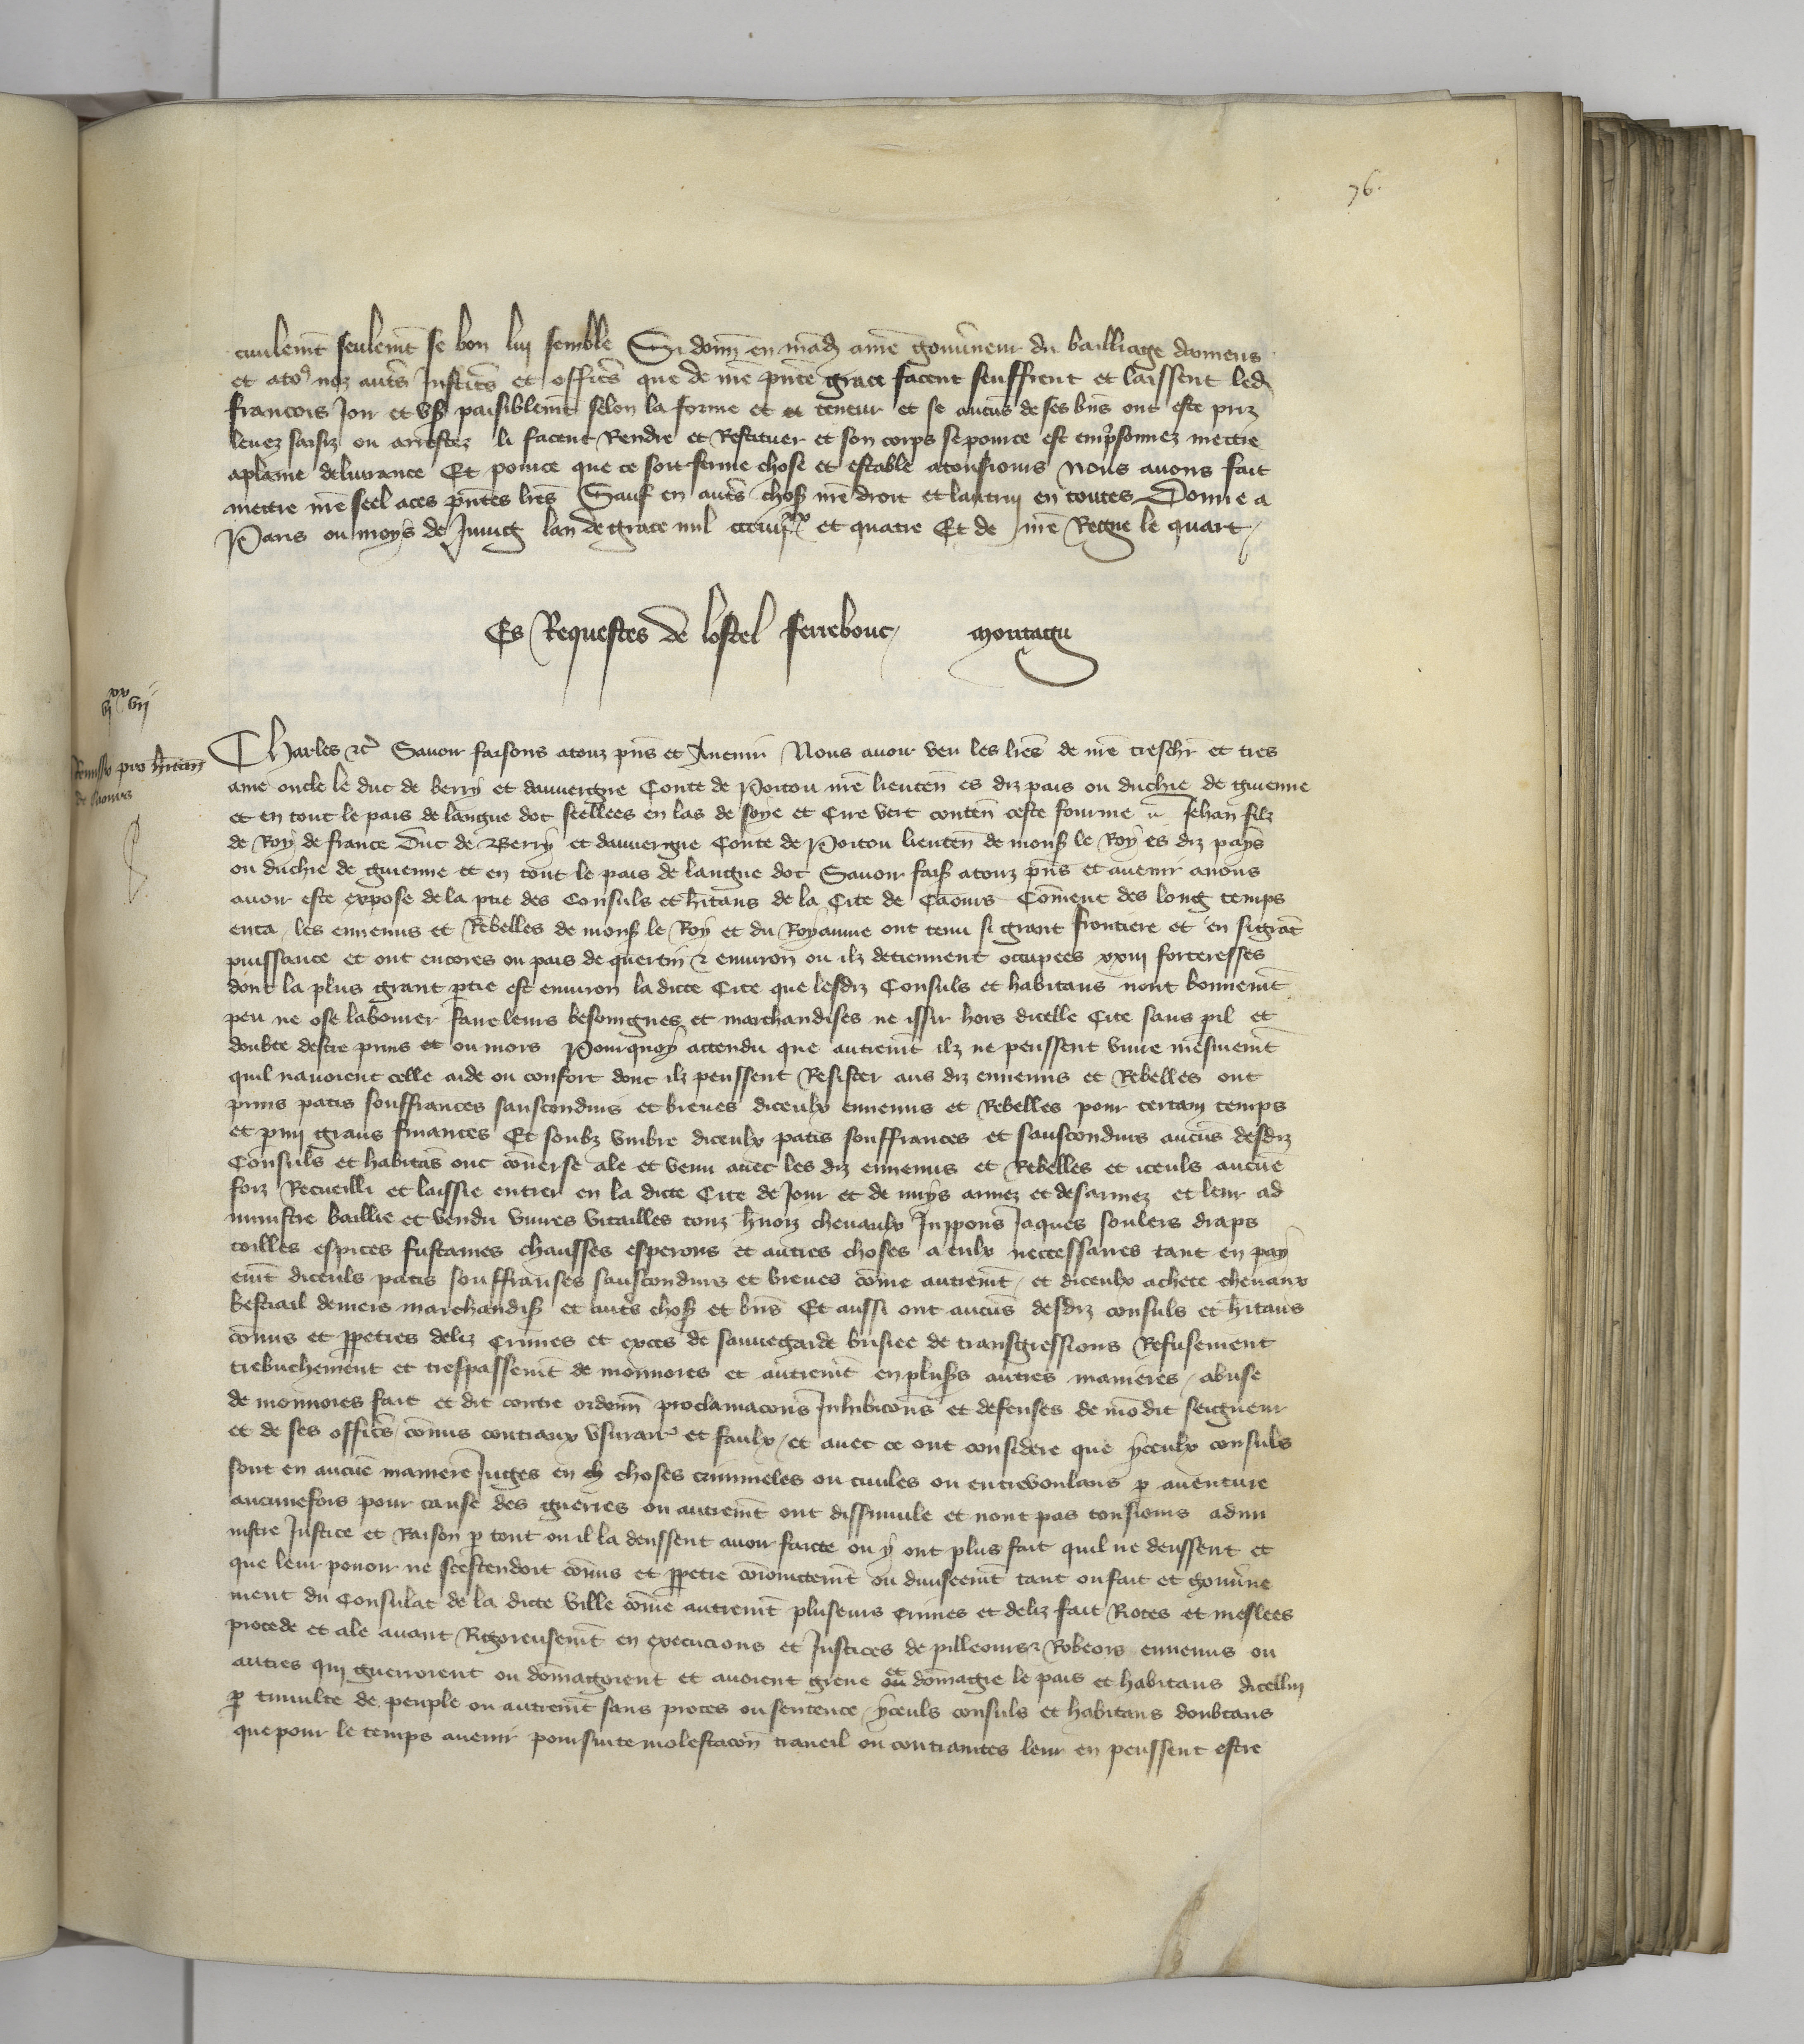 76.
cuulemt seulemt se bon lui semble Si donn en mad a nre gouvneur du bailliage damiens
et a tos noz autrs Justicrs et officrs que de nre pnte grace facent seuffrent et laissent led
francois Joir et usr paisiblemt selon la forme et teneur et se aucus de ses bns ont este priz
levez saisiz ou arrestez li facent Rendre et Restituer et son corps se pour ce est emprsonnez mettre
a plaine delivrance Et pour ce que ce soit ferme chose et estable a tousjours Nous avons fait
mettre nre seel a ces pntes lres Sauf en autrs choses nre droit et lautruy en toutes Donne a
Paris ou moys de Juing lan de grace mil ccciiijxx et quatre Et de nre Regne le quart
Es Requestes de lostel ferrebouc montagu
vjxx vij
Remissio pro hitan
de caours
Charles etc Savoir faisons a touz pns et Avenir Nous avoir veu les lres de nre treschr et tres
ame oncle le duc de berry et dauvergne Conte de Poitou nre lieuten es diz pais ou duchie de guienne
et en tout le pais de langue doc seellees en las de soye et Cire vert conten ceste fourme Jehan filz
de Roy de france Duc de Berry et dauvergne Conte de Poitou lieuten de mons le Roy es diz pays
ou duchie de guienne et en tout le pais de langue doc Savoir fais a touz pns et avenir a nous
avoir este expose de la ptie des Consuls et hitans de la Cite de Caours Coment des long temps
enca les ennemis et Rebelles de mons le Roy et du Royaume ont tenu si grant frontiere et en si grat
puissance et ont encores ou pais de quercin et environ ou ilz detiennent occupees xxiii forteresses
dont la plus grant ptie est environ la dicte Cite que lesdiz Consuls et habitans nont bonnemt
peu ne ose labourer faire leurs besoingnes et marchandises ne issir hors dicelle Cite sans pil et
doubte destre prins et ou mors Pourquoy attendu que autremt ilz ne peussent vivre mesmemt
quil navoient celle aide ou confort dont ilz peussent Resister aus diz ennemis et Rebelles ont
prins patis souffrances saufconduis et brieves diceulx ennemis et Rebelles pour certain temps
et pmi grans finances Et soubz umbre diceulx patis souffrances et saufconduis aucus desdiz
Consuls et habitas ont converse ale et venu avec les diz ennemis et Rebelles et iceuls aucue
foiz Recueilli et laissie entrer en la dicte Cite de Jour et de nuys armez et desarmez et leur ad
ministre baillie et vendu vivres vitailles touz hnoiz chevaulx Juppons Jaques soulers draps
toilles espices fustaines chausses esperons et autres choses a eulx neccessaires tant en pay
emt diceuls patis souffranses saufconduis et brieves come autremt et diceulx achete chevaux
bestiail deniers marchandises et autrs choses et bns Et aussi ont aucus desdiz consuls et hitans
comis et ppetres deliz Crimes et exces de sauvegarde brisiee de transgressions Refusement
trebuchement et trespassemt de monnoies et autremt en plusrs autres manieres abuse
de monnoies fait et dit contre ordonn proclamacons Inhibicons et defenses de mo dit seigneur
et de ses officrs comis contraux usurair et faulx et avec ce ont considere que yceulx consuls
sont en aucue maniere Juges en choses criminelles ou civiles ou entrevoulans p aventure
aucunefois pour cause des guerres ou autremt ont dissimule et nont pas tousjours admi
nistre Justice et Raison p tout ou il la deussent avoir faicte ou y ont plus fait quil ne deussent et
que leur povoir ne sestendoit comis et ppetre coniointemt ou diviseemt tant ou fait et gouvne
ment du Consulat de la dicte ville come autremt pluseurs Crimes et deliz fait Riotes et meslees
procede et ale avant Rigoreusemt en execucions et Justices de pilleours et Robeors ennemis ou
autres qui guerroient ou domagoient et avoient greve et domagie le pais et habitans dicelluy
p tumulte de peuple ou autremt sans proces ou sentence yceuls consuls et habitans doubtans
que pour le temps avenir poursuite molestacon traveil ou contraintes leur en peussent estre